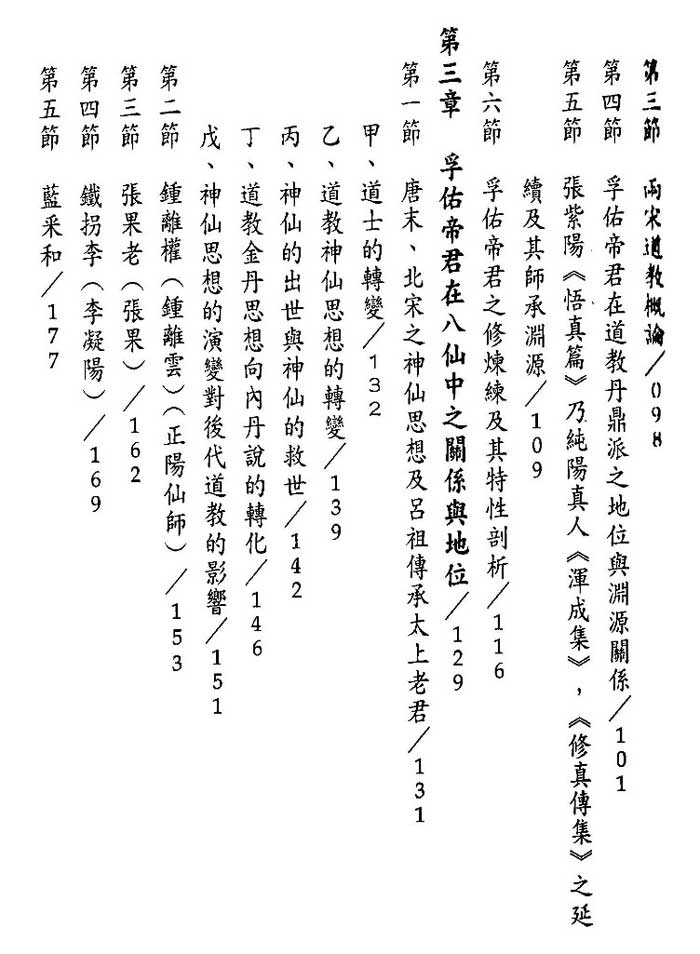 第三節　兩宋道教概論／098
第四節　孚佑帝君在道教丹鼎派之地位與淵源關係／101
第五節　張紫陽《悟真篇》乃純陽真人《渾成集》，《修真傳集》之延
續及其師承淵源／109
第六節　孚佑帝君之修煉練及其特性剖析／116
第三章　孚佑帝君在八仙中之關係與地位／129
第一節　唐末、北宋之神仙思想及呂祖傳承太上老君／131
甲、道士的轉變／132
乙、道教神仙思想的轉變／139
丙、神仙的出世與神仙的救世／142
丁、道教金丹思想向內丹說的轉化／146
戊、神仙思想的演變對後代道教的影響／151
第二節　鍾離權（鍾離雲）（正陽仙師）／153
第三節　張果老（張果）／162
第四節　鐵拐李（李凝陽）／169
第五節　藍采和／177